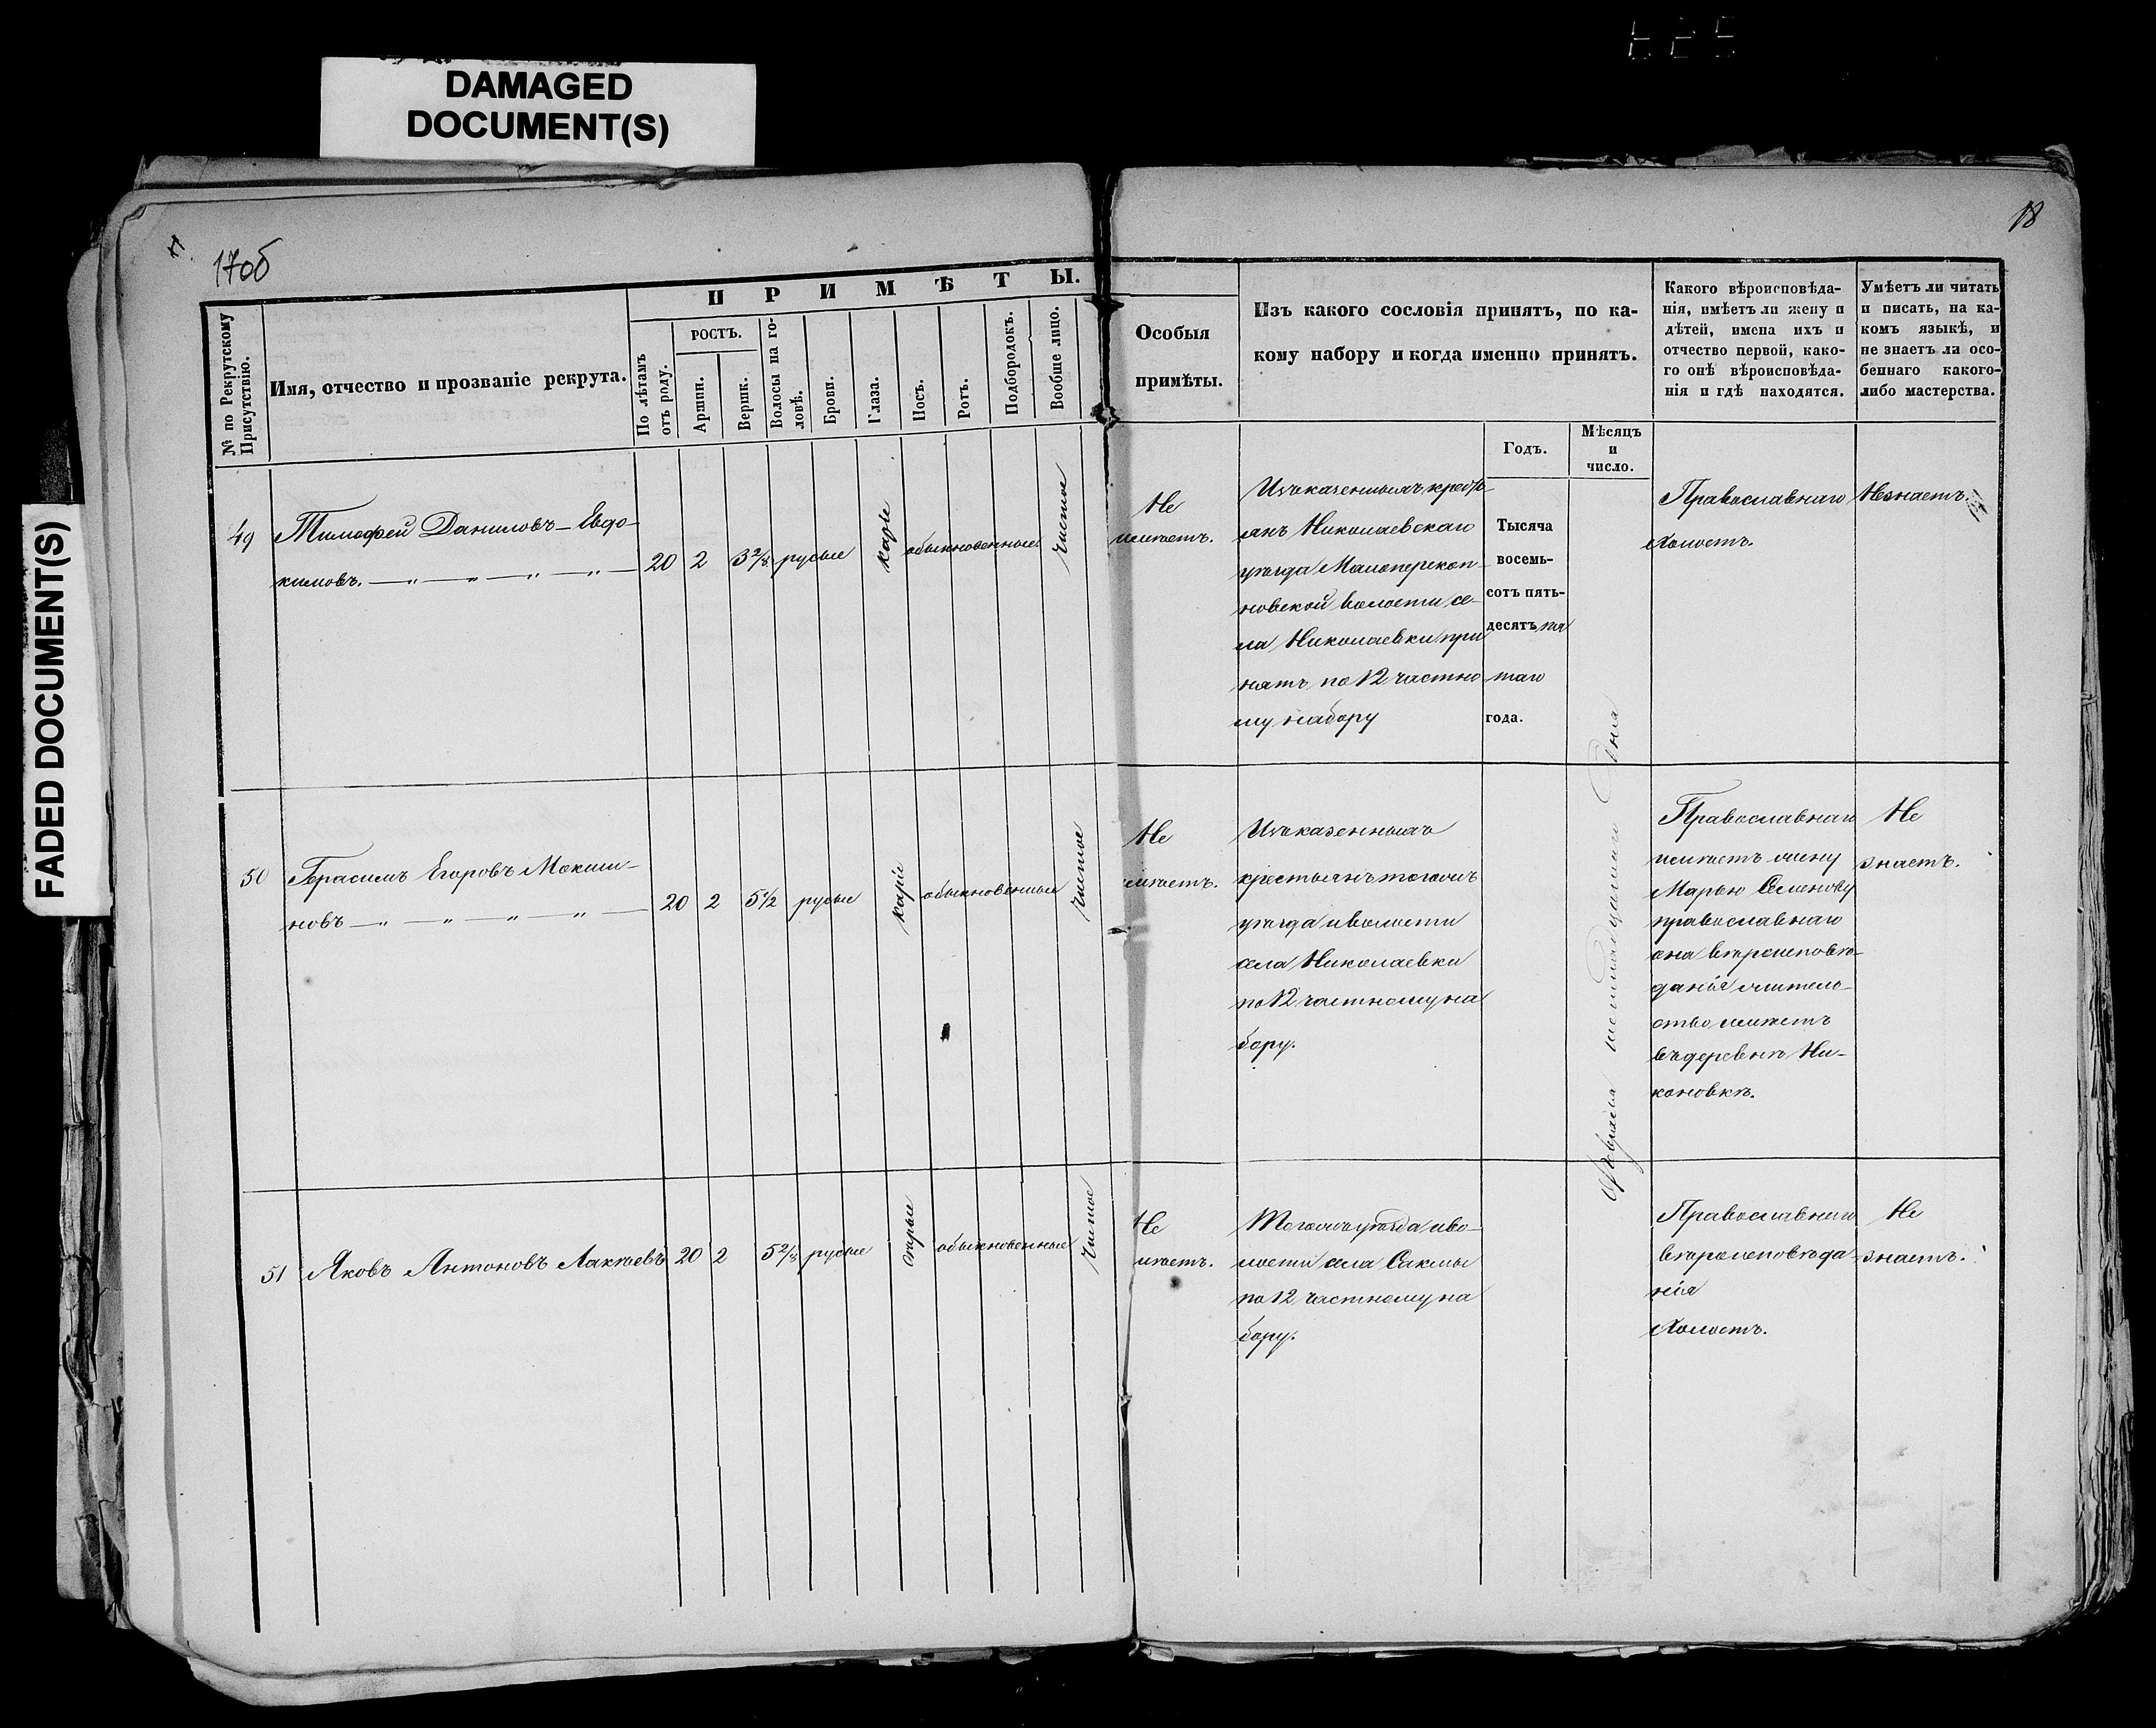 DAMAGED
DOCUMENT(S)
FADED DOCUMENT(S)
17об
18
П Р И М Ѣ Т Ы.
№ по Рекрутскому
Присутствію.
Имя, отчество и прозваніе рекрута.
По лѣтамъ
отъ роду.
РОСТЪ.
Аршин.
Вершк.
Волосы на го-
ловѣ.
Брови.
Глаза.
Носъ.
Ротъ.
Подбородокъ.
Вообще лицо.
Особыя
примѣты.
Изъ какого сословія принятъ, по ка-
кому набору и когда именно принятъ.
Какого вѣроисповѣда-
нія, имѣетъ ли жену и
дѣтей, имена ихъ и
отчество первой, како-
го онѣ вѣроисповѣда-
нія и гдѣ находятся.
Умѣетъ ли читать
и писать, на ка-
комъ языкѣ, и
не знаетъ ли осо-
беннаго какого-
либо мастерства.
Годъ.
Мѣсяцъ
и
число.
49
Тимофей Даниловъ Евдо-
кимовъ.
20 2 3 2/8 русые карiе обыкновенные чистое
Не
имѣетъ.
Изъ казенныхъ кресть-
янъ Николаевскаго
уѣзда Малоперекоп-
новской волости се-
ла Николаевки при
нятъ по 12 частно
му набору
Тысяча
восемь-
сотъ пять-
десятъ пя
таго
года.
Февраля шестнадцатаго дня
Православнаго
Холостъ.
Незнаетъ.
50
Герасимъ Егоровъ Мокши-
новъ
20 2 5 1/2 русые карiе обыкновенные чистое
Не
имѣетъ.
Изъ казенныхъ
крестьянъ тогожъ
уѣзда и волости
села Николаевки
по 12 частному на
бору.
Православнаго
имѣетъ жену
Марью Семенову
православнаго
она вѣроисповѣ-
данiя жител-
ство имѣетъ
въ деревнѣ Ни-
коновкѣ.
Не
знаетъ.
51
Яковъ Антоновъ
20 2 5 2/8 русые Сѣрые обыкновенные чистое
Не
имѣетъ.
Тогожъ уѣзда и во-
лости села Сакмы
по 12 частному на
бору.
Православнаго
вѣроисповѣда
нiя
Холостъ.
Не
знаетъ.